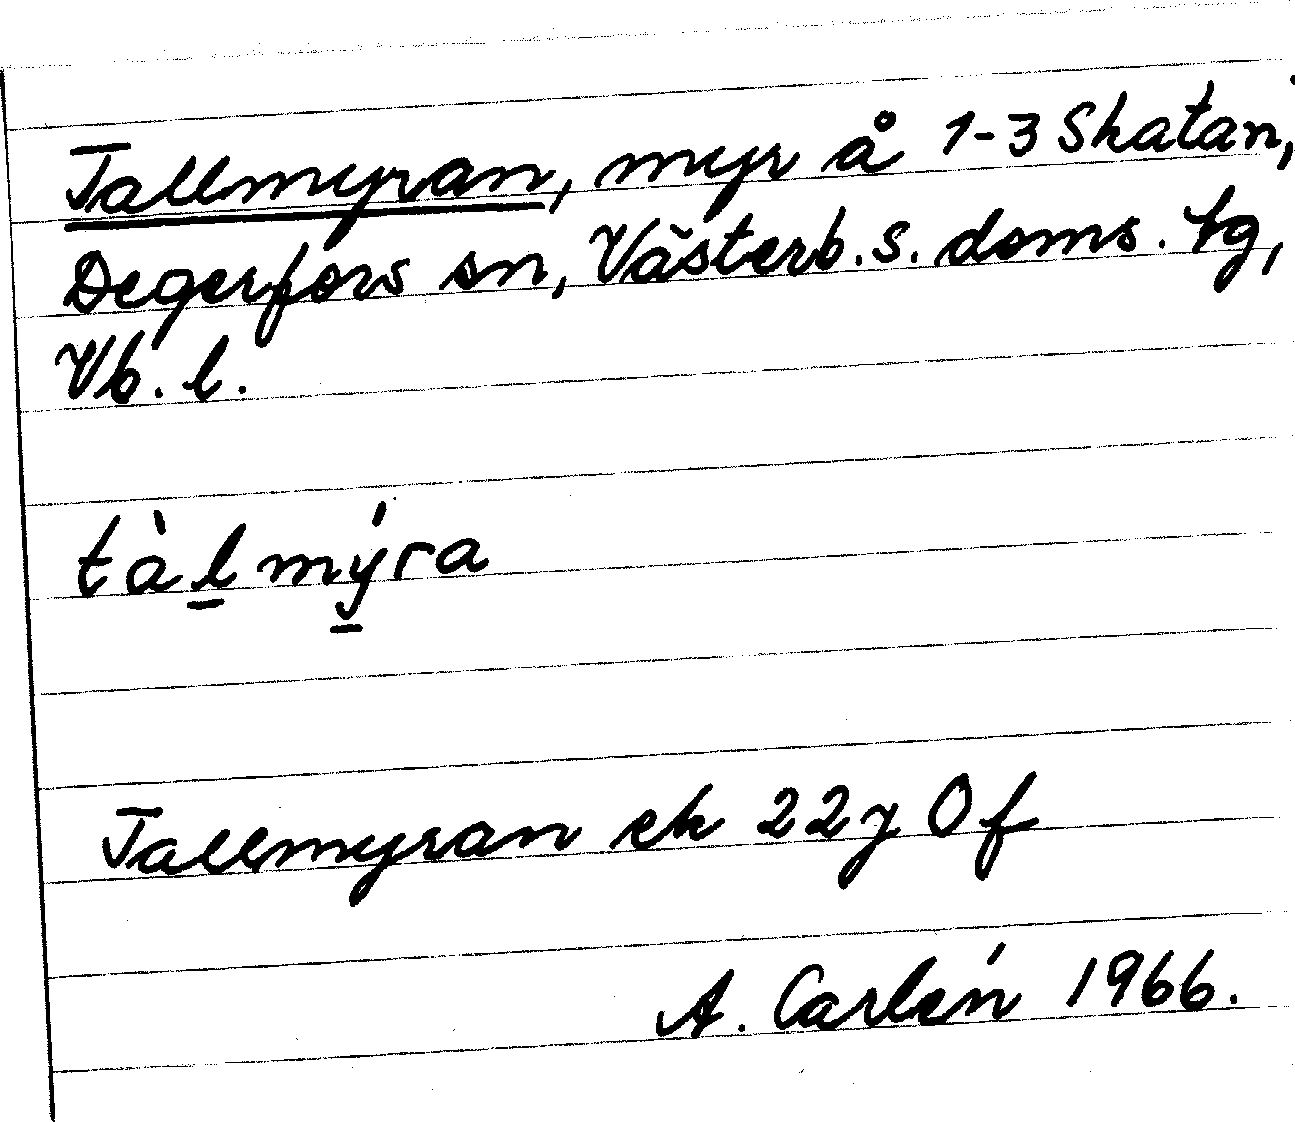 Tallmyran, myr å 1-3 Skatan,
Degerfors sn, Västerb. s. doms. tg,
Vb. l.
tàl̲mý̲ra
Tallmyran ek 22 y 0 f
A. Carlén 1966.